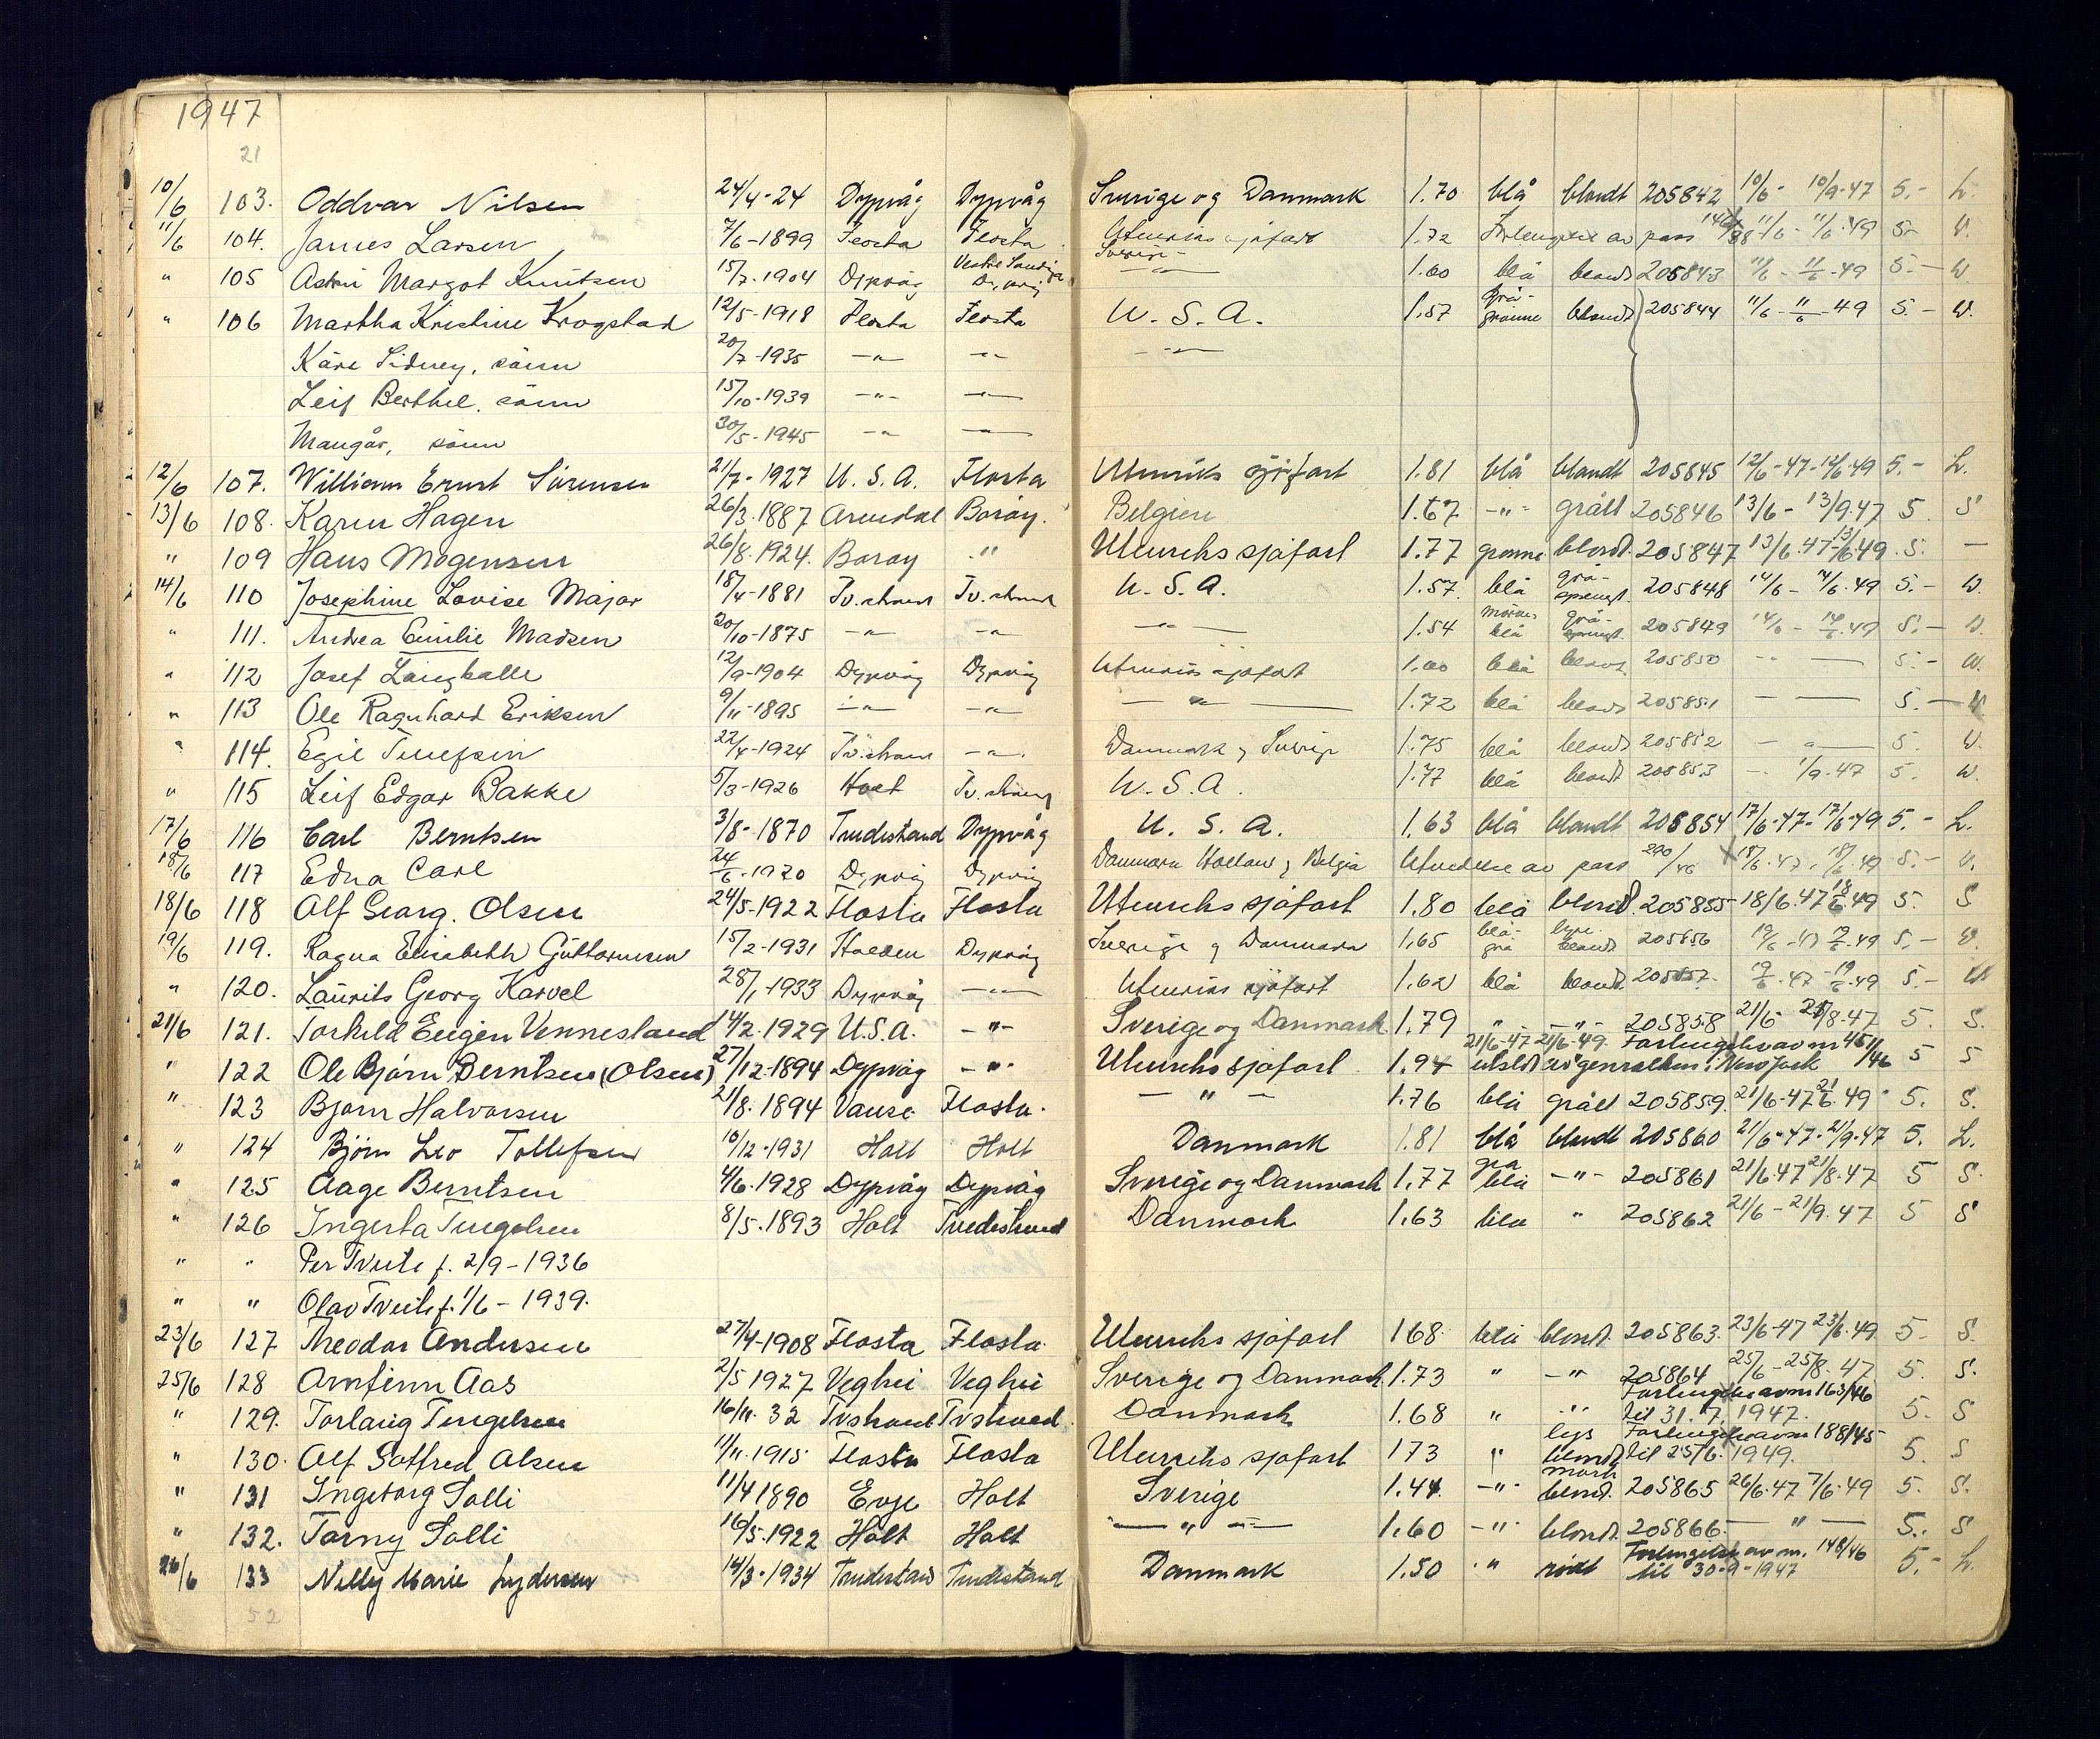 1947
21
10/6 103. Oddvar Nilsen 24/4-24 Dypvåg Dypvåg Sverige og Danmark 1.70 blå blondt 205842 10/6- 10/9-47 5.- L.
11/6 104. James Larsen 7/6-1899 Flosta Flosta Utenriks sjøfart 1.72 Forlengelse av pass 11/6- 11/6-49 5.- W.
" 105 Astri Margot Knutsen 15/7-1904 Dypvåg Dypvåg Sverige - 1.60 blå blondt 205843 11/6 - 11/6-49 5.- W
" 106 Martha Kristine Krogstad 12/5-1918 Flosta Flosta U. S. A. 1.57 grå-grønne blondt 205844 11/6 - 11/6-49 5.- W.
Kåre Sidney, sönn 20/7-1935 -"- -"- -"-
Leif Berthel. sönn 15/10-1939 -"- -"-
Mangår, sönn 30/5-1945 -"- -"-
12/6 107. William Ernst Sörensen 21/7-1927 U. S. A. Flosta Utenriks sjøfart 1.81 blå blondt 205845 12/6-47-12/6-49 5.- L.
13/6 108. Karen Hagen 26/3.1887 Arendal Borøy. Belgien 1.67 -"- grått 205846 13/6 - 13/9.47 5. S
" 109 Hans Mogensen 26/8.1924. Borøy ." Utenriks sjøfart 1.77 grønne blondt. 205847 13/6.47-13/6.49. 5. —
14/6 110 Josephine Lovise Major 18/4-1881 Tv.strand Tv.strand U. S. A. 1.57. blå grå-sprengt. 205848 14/6 - 14/6.49 5.- W.
" 111. Andrea Emilie Madsen 20/10-1875 -"- -"- -"- 1.54 blå grå-sprengt. 205849 14/6 - 14/6.49 5.- W.
" 112 Josef Langballe 12/9-1904 Dypvåg Dypvåg Utenriks sjøfart 1.60 blå blondt. 205850 -"- 5.- W.
" 113 Ole Ragnhard Eriksen 9/11-1895 -"- -"- -"- 1.72 blå blondt 205851 — — 5.- W
" 114. Egil 22/4-1924 Tv.strand -"- Danmark og Sverige 1.75 blå blondt 205852 -"- 5. W.
" 115 Leif Edgar Bakke 5/3-1926 Holt Tv.strand U.S.A. 1.77 blå blondt 205853 - 1/9.47 5. W.
17/6 116 Carl Berntsen 3/8-1870 Tvedestrand Dypvåg U. S. A. 1.63 blå blondt 205854 17/6-47-17/6-49 5.- L.
18/6 117 Edna Carl 24/6-1920 Dypvåg Dypvåg Danmark Holland og Belgia Utvidelse av pass 18/6.47. 18/6.49 5.- W.
18/6 118 Alf Georg. Olsen 24/5-1922 Flosta Flosta Utenriks sjøfart 1.80 blå blondt. 205855 18/6.47 18/6.49 5. S
19/6 119. Ragna Elisabeth Guttormsen 15/2-1931 Halden Dypvåg Sverige og Danmark 1,65 blå-grå lyse-blondt 205856 19/6-47 19/6.49 5.- W.
" 120. Laurits Georg Karvel 28/1-1933 Dypvåg -"- Utenriks sjøfart 1.62 blå blondt. 205857. 19/6.47 - 19/6.49 5.- W
21/6 121. Torkild Eugen Vennesland 14/2.1929 U.S.A. -"- Sverige og Danmark. 1.79 " -"- 205858 21/6 - 21/8.47 5. S.
" 122 Ole Bjørn Berntsen (Olsen) 27/12-1894 Dypvåg -"- Utenriks sjøfart 1.94 21/6-47 21/6-49. Forlengelse av nr 451/46 utstedt av genralkons. i New York 5 S
" 123 Bjørn Halvorsen 21/8.1894 Vanse Flosta. — " — 1.76 blå grått 205859. 21/6-47 21/6.49 5. S.
" 124 Bjørn Leo Tollefsen 10/12-1931 Holt Holt Danmark 1.81 blå blondt 205860 21/6-47-21/9-47 5. L.
" 125 Aage Berntsen 4/6.1928 Dypvåg Dypvåg Sverige og Danmark 1.77 grå blå -"- 205861 21/6.47 21/8.47 5 S.
" 126 Ingerta Tingelsen 8/5.1893 Holt Tvedestrand Danmark 1.63 blå " 205862 21/6 - 21/9.47 5 S
" " Per Tveite f. 2/9-1936
" " Olav Tveite f. 1/6-1939.
23/6 127 Theodor Andersen 27/4-1908 Flosta Flosta. Utenriks sjøfart 168. blå blondt. 205863. 23/6-47 23/6.49 5. S.
25/6 128 Arnfinn Aas 2/5 1927 Veghei Veghei Sverige og Danmark. 1.73 " -"- 205864 25/6-25/8.47. 5. S.
" 129. Torlaug Tingelsen 16/11.32 Tvstrand Tvstrand. Danmark 1.68 " ." Forlengelse av nr 163/46 til 31.7. 1947. 5. S
" 130. Alf Gotfred Olsen 11/11.1915 Flosta Flosta Utenriks sjøfart 173 " lys blondt Forlengelse av nr 188/45 til 25/6.1949. 5. S
" 131 Ingeborg Solli 11/4 1890 Evje Holt Sverige 1.44. -"- mørk blond. 205865 26/6.47 7/6.49 5. S.
" 132. Torny Solli 16/5.1922 Holt Holt — " — 1.60 -"- blondt. 205866. — " — 5.. S
26/6 133 Nelly Marie Lydersen 14/3.1934 Tvedestrand Tvedestrand Danmark 1.50 . " rødt Forlengelse av nr. 148/46 til 30-9-1947 5.- L.
52